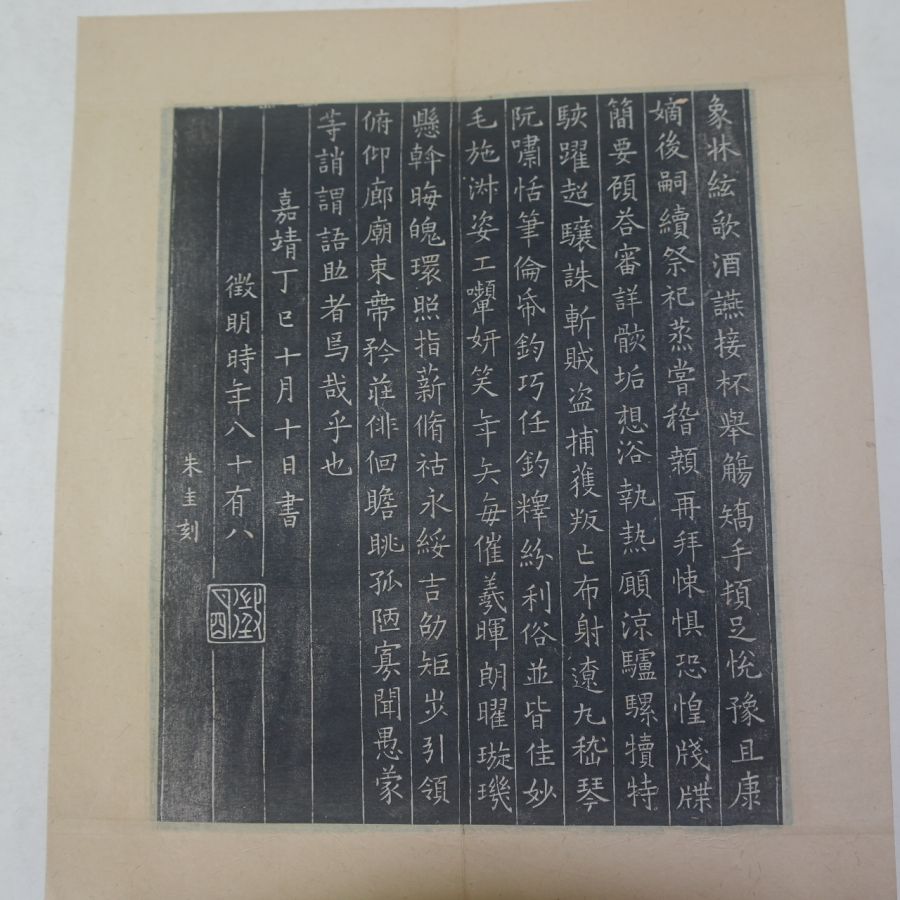 象牀絃歌酒讌接杯舉觴矯手頓足悅豫且康
嫡後嗣續祭祀蒸嘗稽顙再拜悚懼恐惶牋牒
簡要顧答審詳骸垢想浴執熱願涼驢騾犢特
駭躍超驤誅斬賊盜捕獲叛亡布射遼丸嵇琴
阮嘯恬筆倫帋鈞巧任釣釋紛利俗並皆佳妙
毛施淑姿工嚬妍笑年矢每催羲暉朗曜璇璣
懸斡晦魄環照指薪脩祜永綏吉劭矩步引領
俯仰廊廟束帶矜莊俳佪瞻眺孤陋寡聞愚蒙
等誚謂語助者焉哉乎也
嘉靖丁巳十月十日書
徵明時年八十有八
朱圭刻
徵明